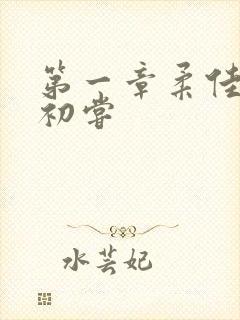 第一章柔佳
初嘗
水芸妃